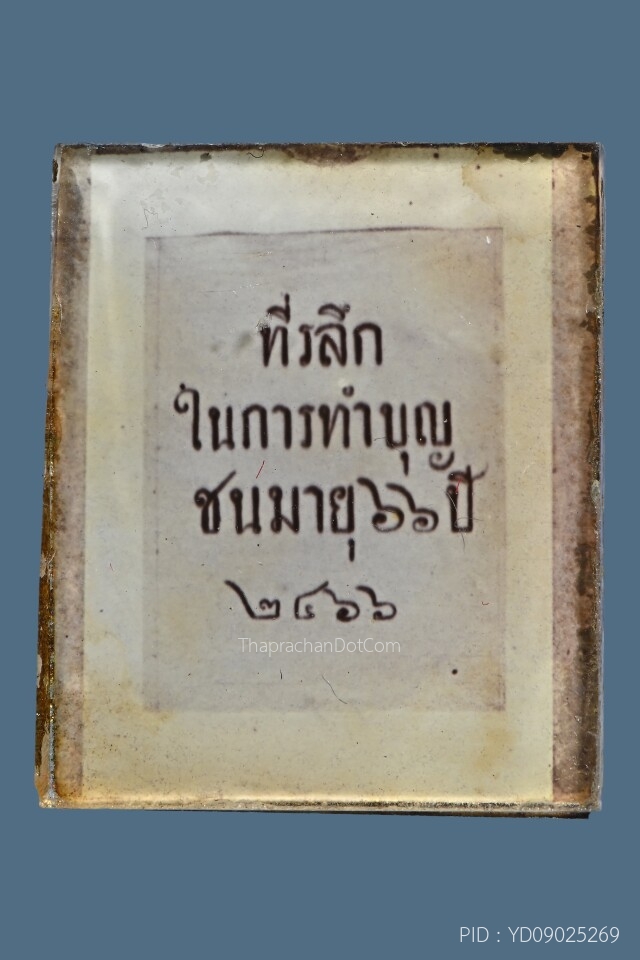 ที่รลึก
ในการทำบุญ
ชนมายุ ๖๖ ปี
๒๔๖๖
ThaprachanDotCom
PID : YD09025269